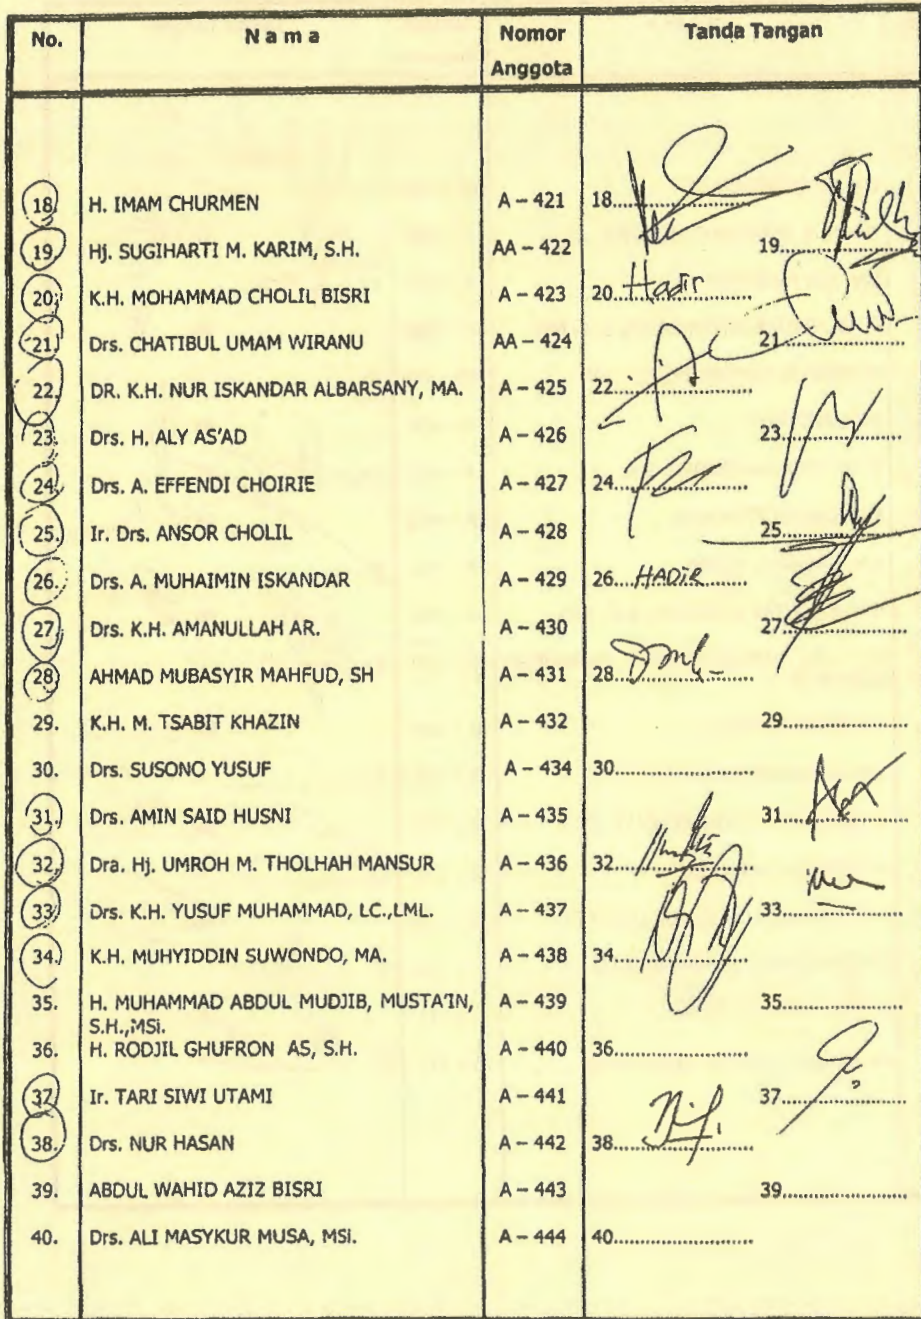 No. N a m a Nomor Anggota Tanda Tangan
18. H. IMAM CHURMEN A – 421 18..............
19. Hj. SUGIHARTI M. KARIM, S.H. AA – 422 19..............
20. K.H. MOHAMMAD CHOLIL BISRI A – 423 20. Hadir
21. Drs. CHATIBUL UMAM WIRANU AA – 424 21..............
22. DR. K.H. NUR ISKANDAR ALBARSANY, MA. A – 425 22..............
23. Drs. H. ALY AS'AD A – 426 23..............
24. Drs. A. EFFENDI CHOIRIE A – 427 24..............
25. Ir. Drs. ANSOR CHOLIL A – 428 25..............
26. Drs. A. MUHAIMIN ISKANDAR A – 429 26. HADIR
27. Drs. K.H. AMANULLAH AR. A – 430 27..............
28. AHMAD MUBASYIR MAHFUD, SH A – 431 28..............
29. K.H. M. TSABIT KHAZIN A – 432 29..............
30. Drs. SUSONO YUSUF A – 434 30..............
31. Drs. AMIN SAID HUSNI A – 435 31..............
32. Dra. Hj. UMROH M. THOLHAH MANSUR A – 436 32..............
33. Drs. K.H. YUSUF MUHAMMAD, LC.,LML. A – 437 33..............
34. K.H. MUHYIDDIN SUWONDO, MA. A – 438 34..............
35. H. MUHAMMAD ABDUL MUDJIB, MUSTA'IN, A – 439 35..............
S.H.,MSi.
36. H. RODJIL GHUFRON AS, S.H. A – 440 36..............
37. Ir. TARI SIWI UTAMI A – 441 37..............
38. Drs. NUR HASAN A – 442 38..............
39. ABDUL WAHID AZIZ BISRI A – 443 39..............
40. Drs. ALI MASYKUR MUSA, MSi. A – 444 40..............